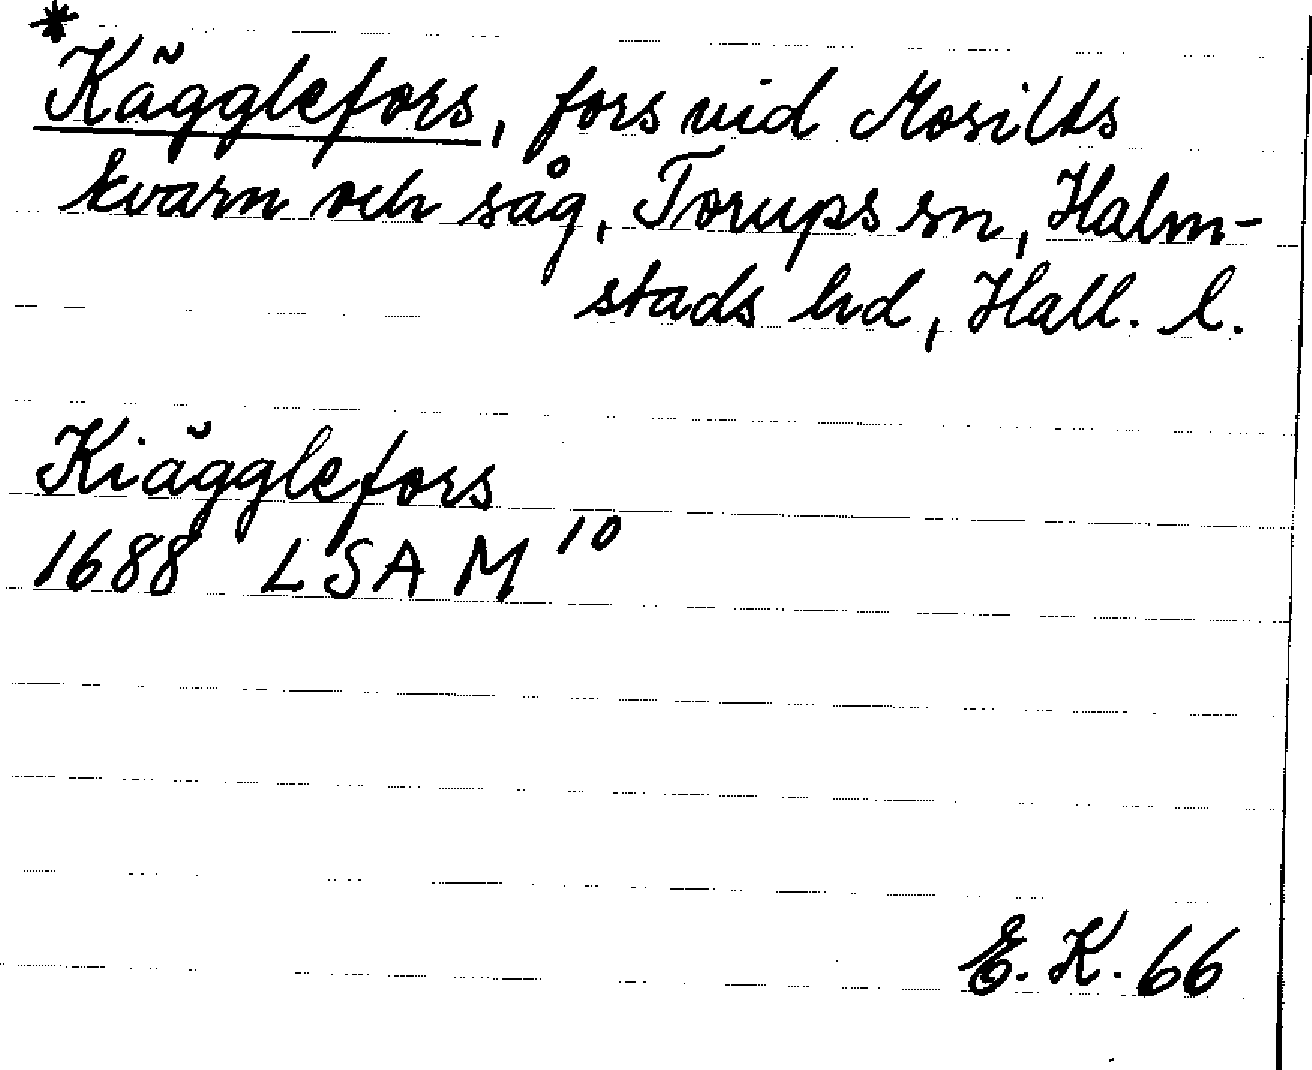 *Kägglefors, fors vid Mosilts
kvarn och såg, Torups sn, Halm-
stads hd, Hall. l.
Kiägglefors
1688 LSA M 10
E. K. 66